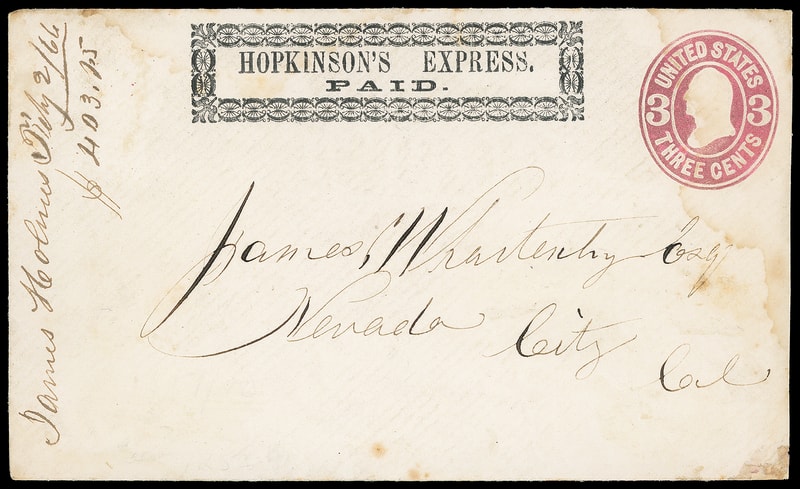 HOPKINSON'S EXPRESS.
PAID.
UNITED STATES
3 3
THREE CENTS
James Whartenby Esq
Nevada City
Cal
James Holmes July 2/66
$403.15